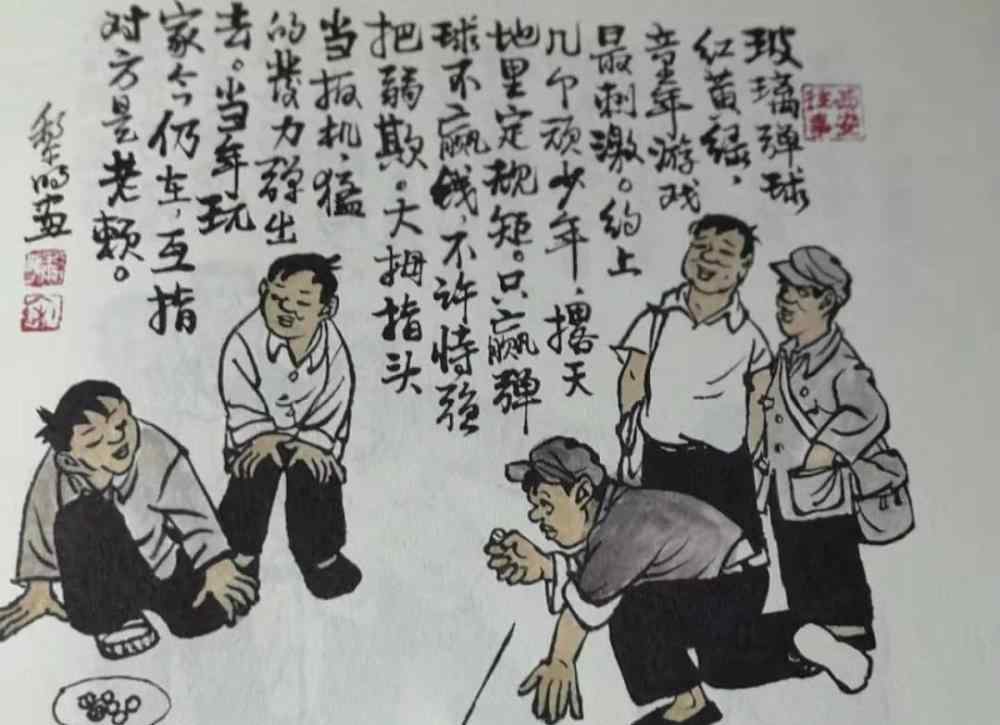 玻璃弹球
红黄绿，
童年游戏
最刺激。约上
几个顽少年，撂天
地里定规矩。只赢弹
球不赢钱，不许恃强
把弱欺。大拇指头
当扳机，猛
的发力弹出
去。当年玩
家今仍在，互指
对方是老赖。
西安
往事